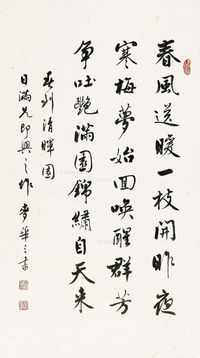 春風送暖一枝開昨夜
寒梅夢始回喚醒群芳
争吐艷滿園錦繡自天来
春到清暉園
日滿兄即興之作 麥華三書